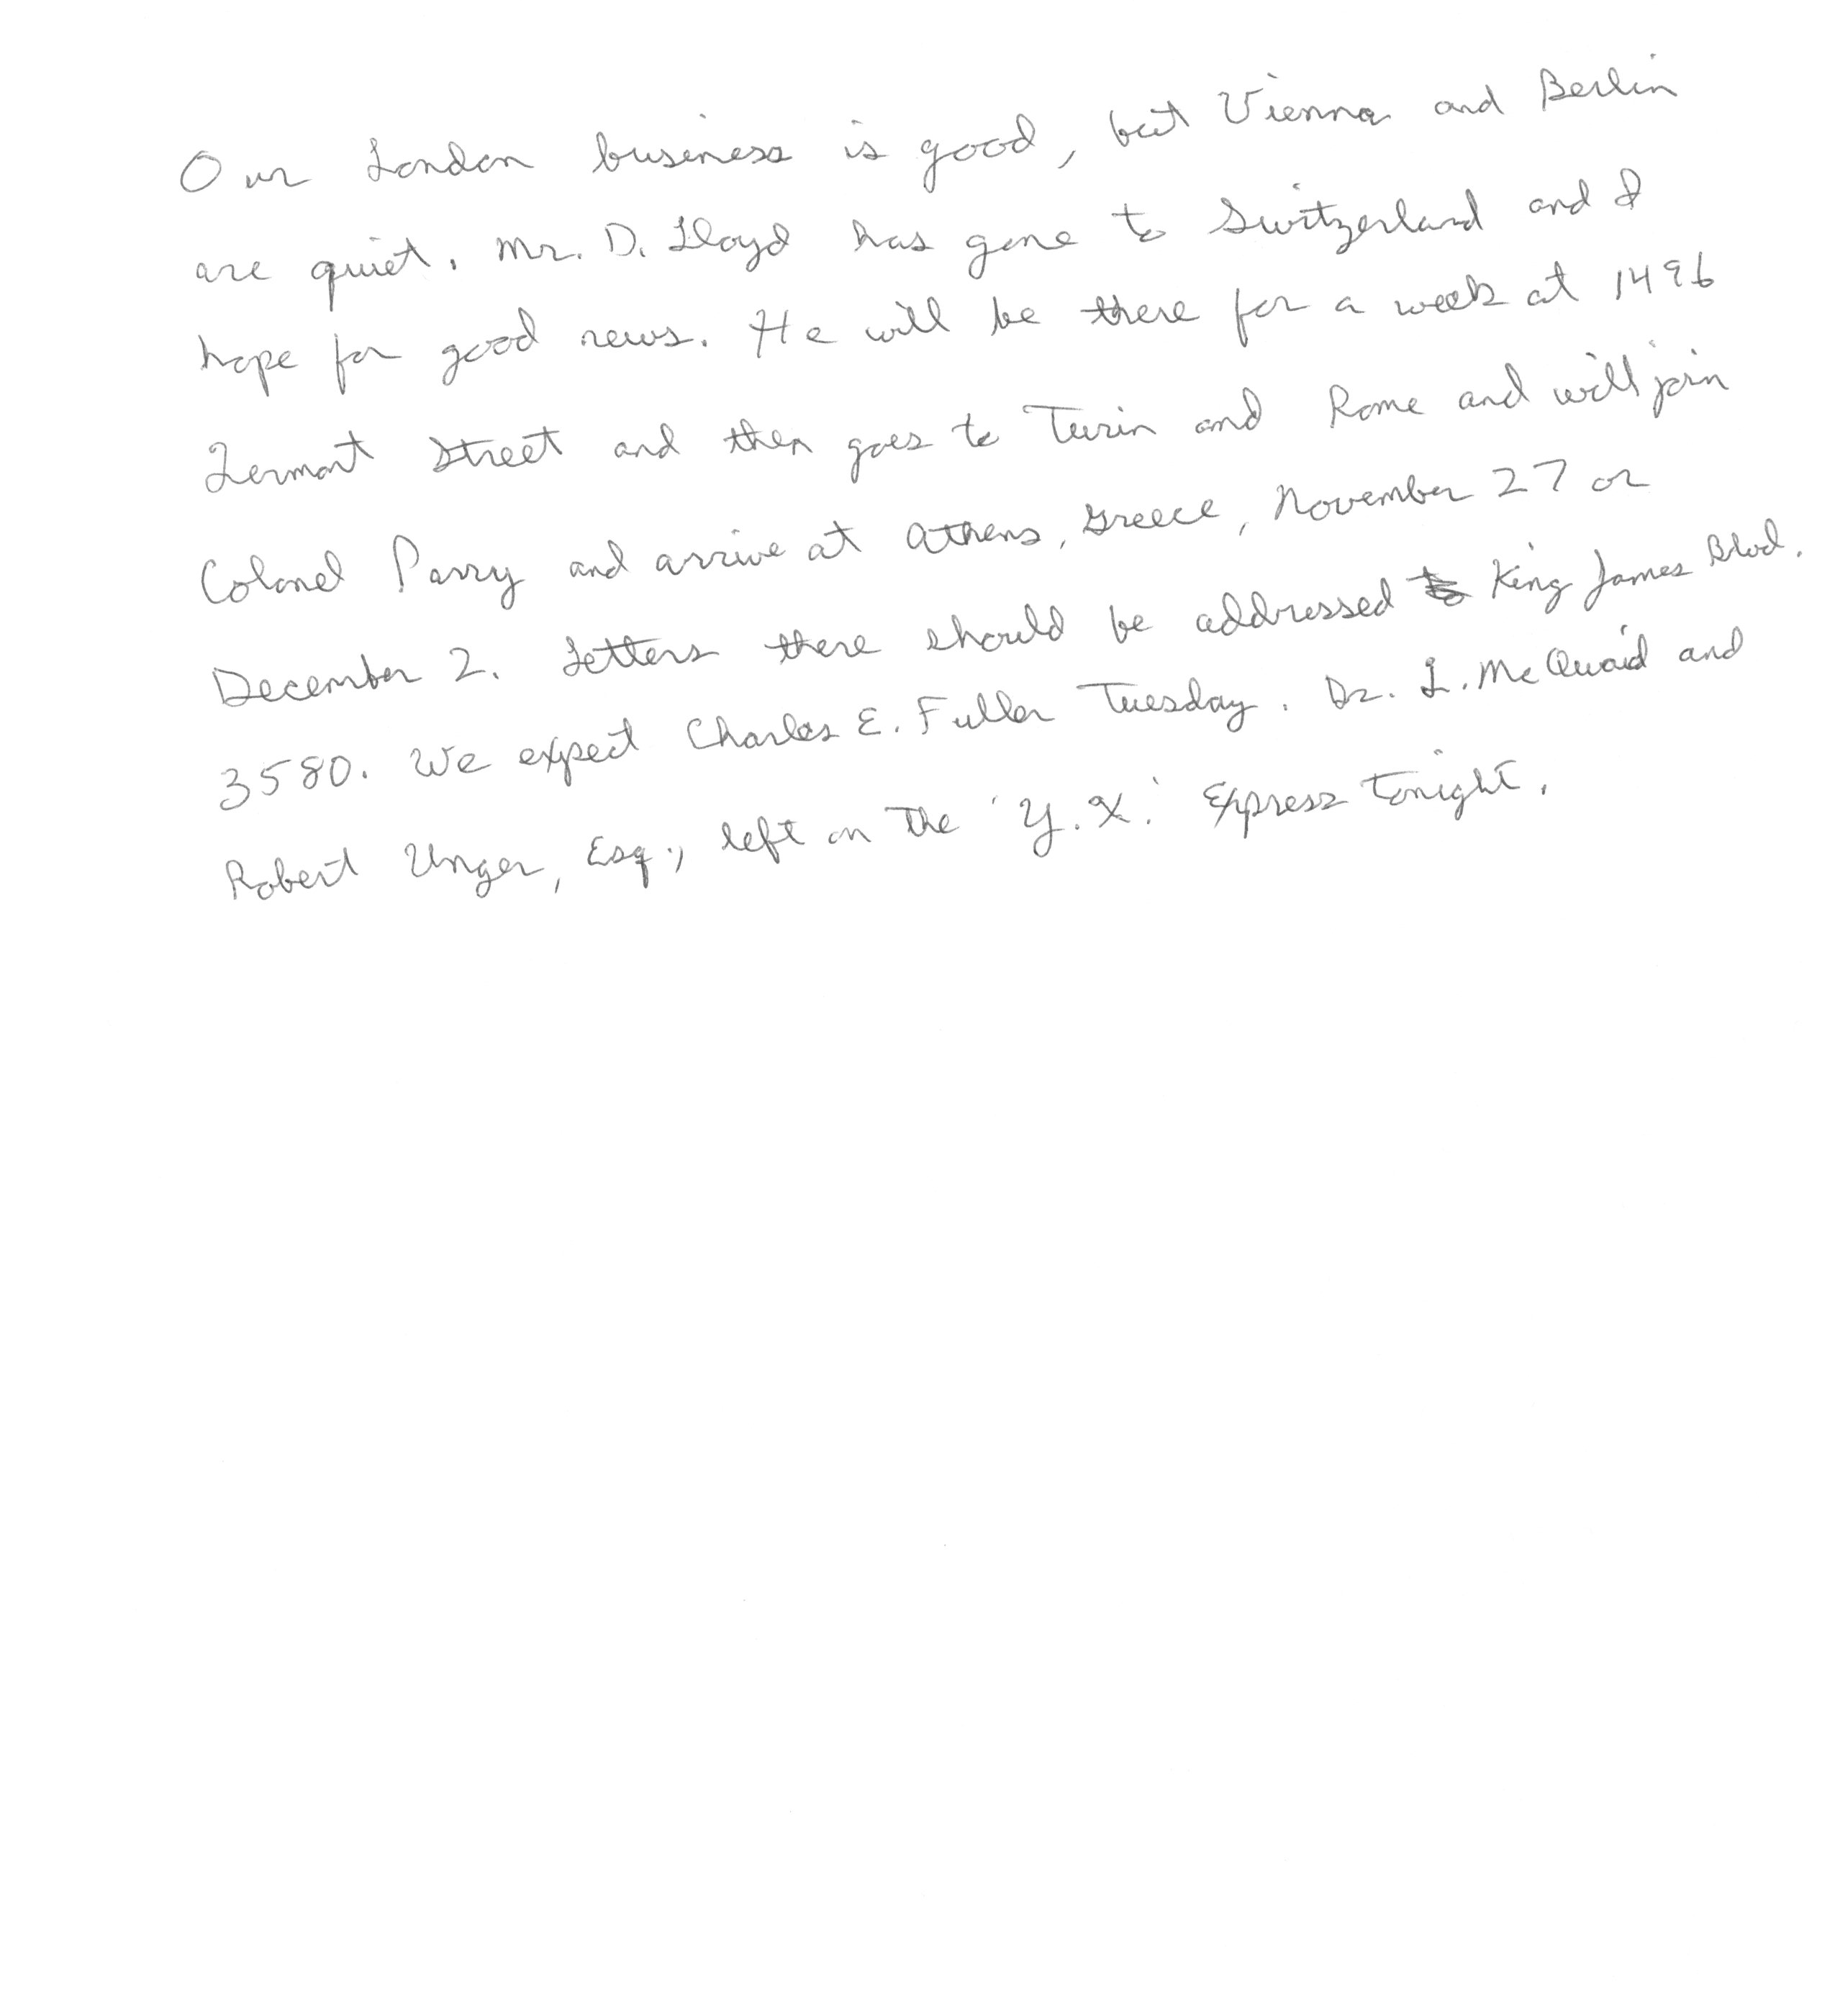 Our London business is good, but Vienna and Berlin
are quiet. Mr. D. Lloyd has gone to Switzerland and I
hope for good news. He will be there for a week at 1496
Zermont Street and then goes to Turin and Rome and will join
Colonel Parry and arrive at Athens, Greece, November 27 or
December 2. Letters there should be addressed to King James Blvd.
3580. We expect Charles E. Fuller Tuesday. Dr. L. McQuaid and
Robert Unger, Esq., left on the 'Y.X.' Express tonight.